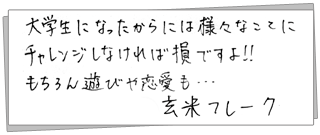 大学生になったからには様々なことに
チャレンジしなければ損ですよ!!
もちろん遊びや恋愛も…
玄米フレーク